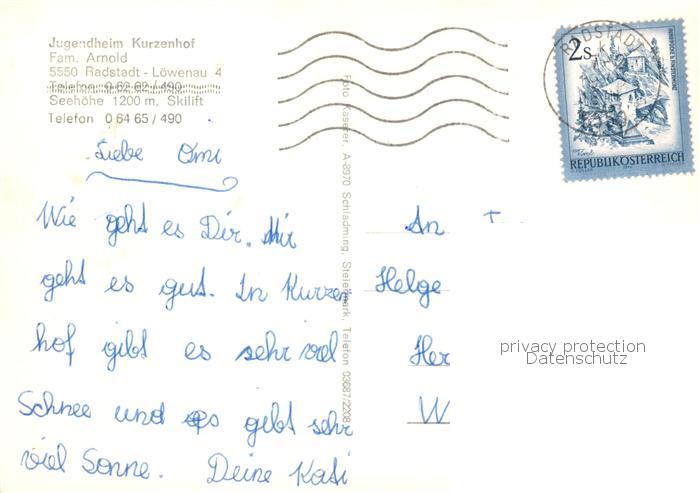 Jugendheim Kurzenhof
Fam. Arnold
5550 Radstadt - Löwenau 4
Telefon 0 62 62 / 490
Seehöhe 1200 m, Skilift
Telefon 0 64 65 / 490
Liebe Omi
Wie geht es Dir. Mir
geht es gut. In Kurzen
hof gibt es sehr viel
Schnee und es gibt sehr
viel Sonne. Deine Kati
Foto Kaserer, A-8970 Schladming, Steiermark, Telefon 03687/2208
2 S
RADSTADT
REPUBLIK ÖSTERREICH
An
Helge
Her
W
privacy protection
Datenschutz